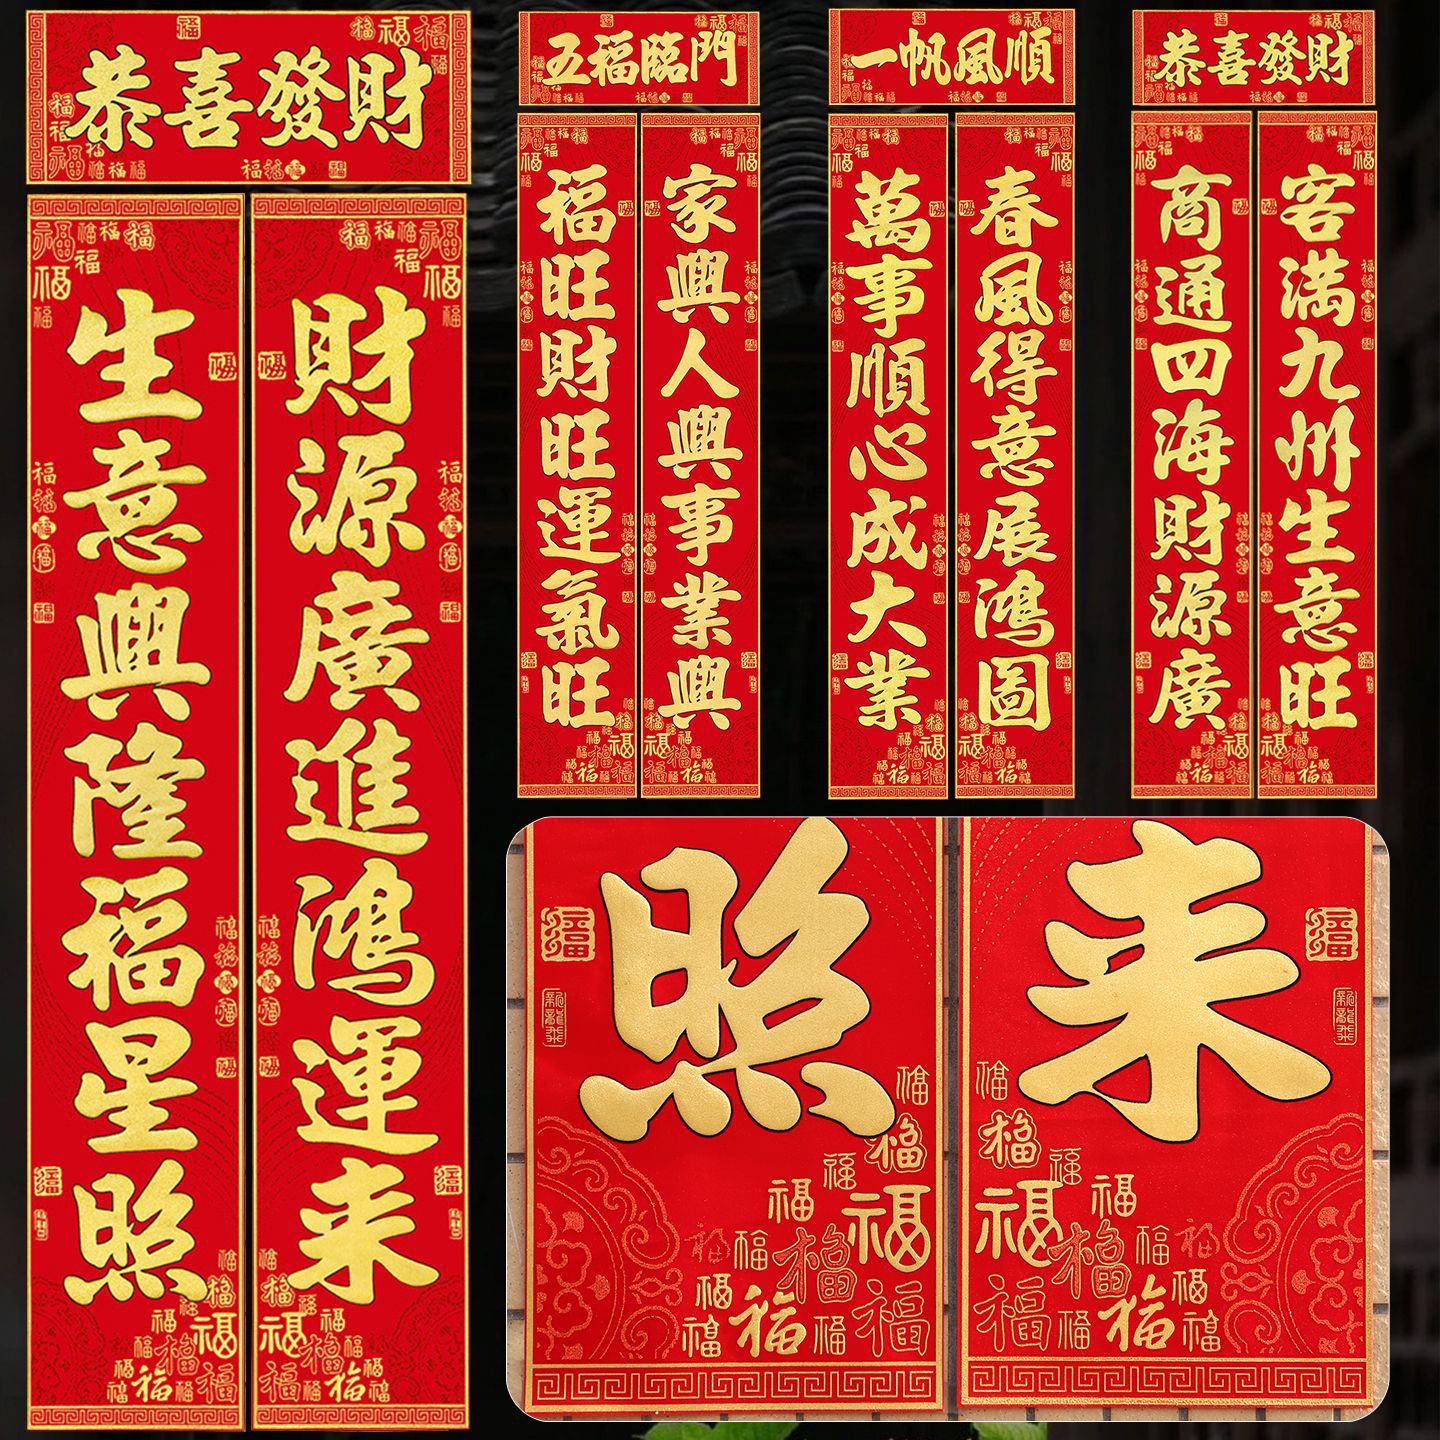 恭喜發財
生意興隆福星照
財源廣進鴻運来
五福臨門
福旺財旺運氣旺
家興人興事業興
一帆風順
萬事順心成大業
春風得意展鴻圖
恭喜發財
商通四海財源廣
客满九州生意旺
照
来
福
福
福
福
福
福
福
福
福
福
福
福